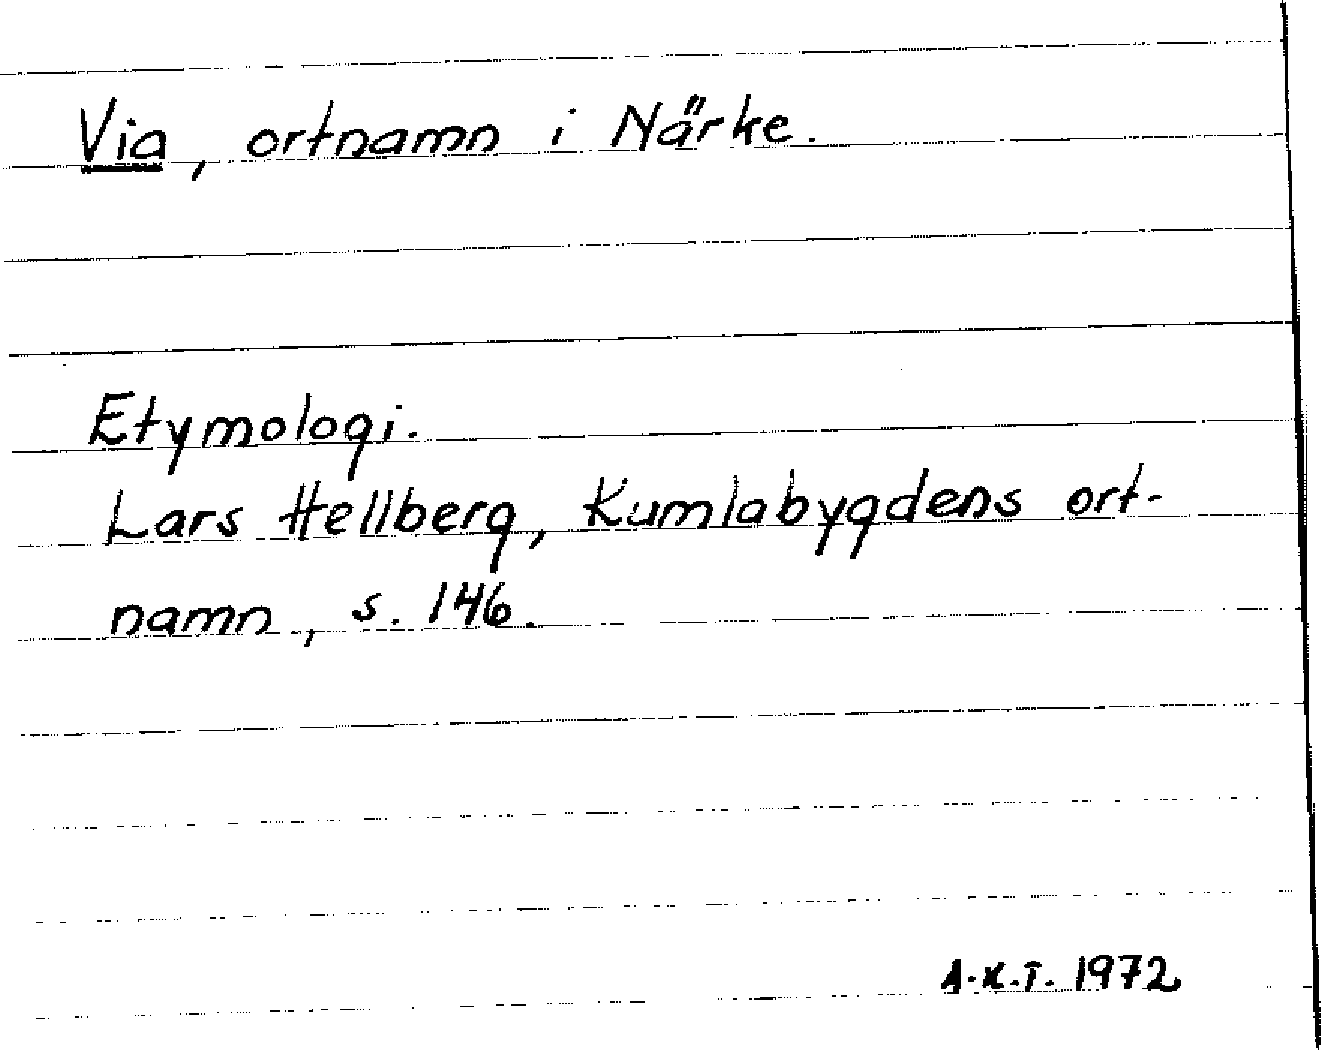 Via, ortnamn i Närke.
Etymologi.
Lars Hellberg, Kumlabygdens ort-
namn, s. 146.
A.K.T. 1972